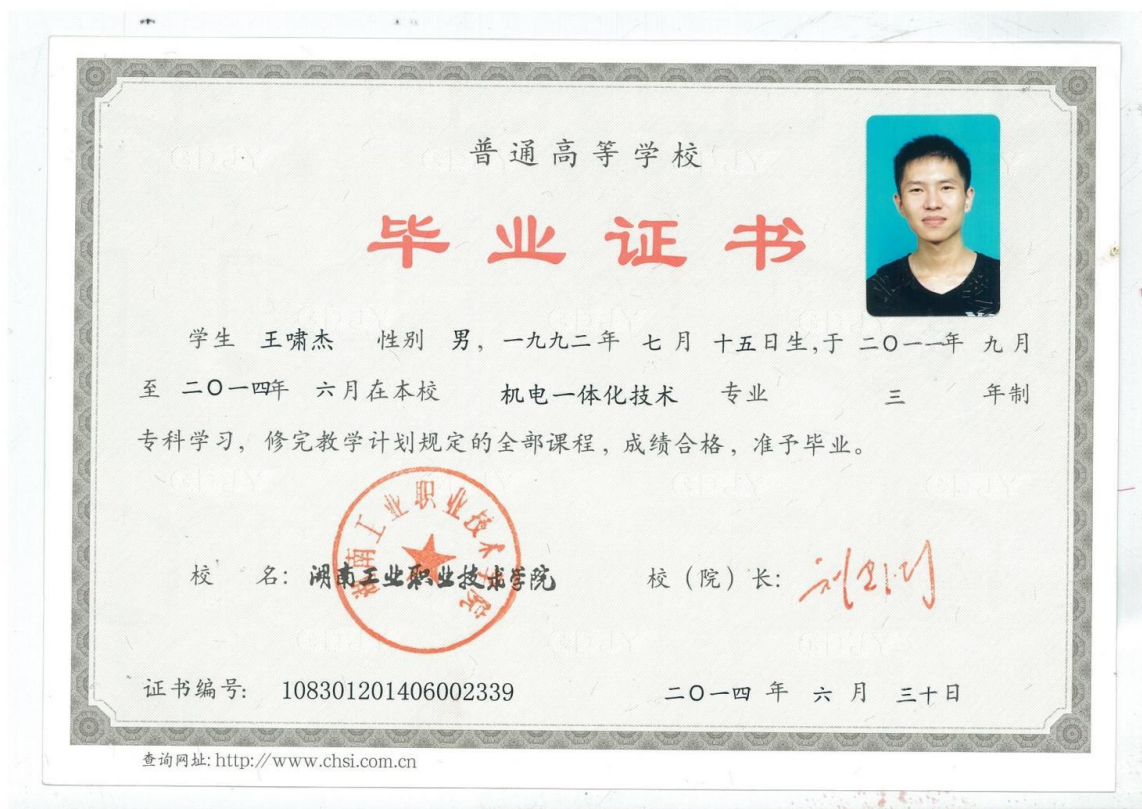 普通高等学校
毕业证书
学生 王啸杰 性别 男, 一九九二年 七月 十五日生,于 二〇一一年 九月
至 二〇一四年 六月在本校 机电一体化技术 专业 三 年制
专科学习, 修完教学计划规定的全部课程, 成绩合格, 准予毕业。
湖南工业职业技术学院
校 名: 湖南工业职业技术学院 校(院)长:
证书编号: 108301201406002339 二〇一四 年 六 月 三十日
查询网址: http://www.chsi.com.cn